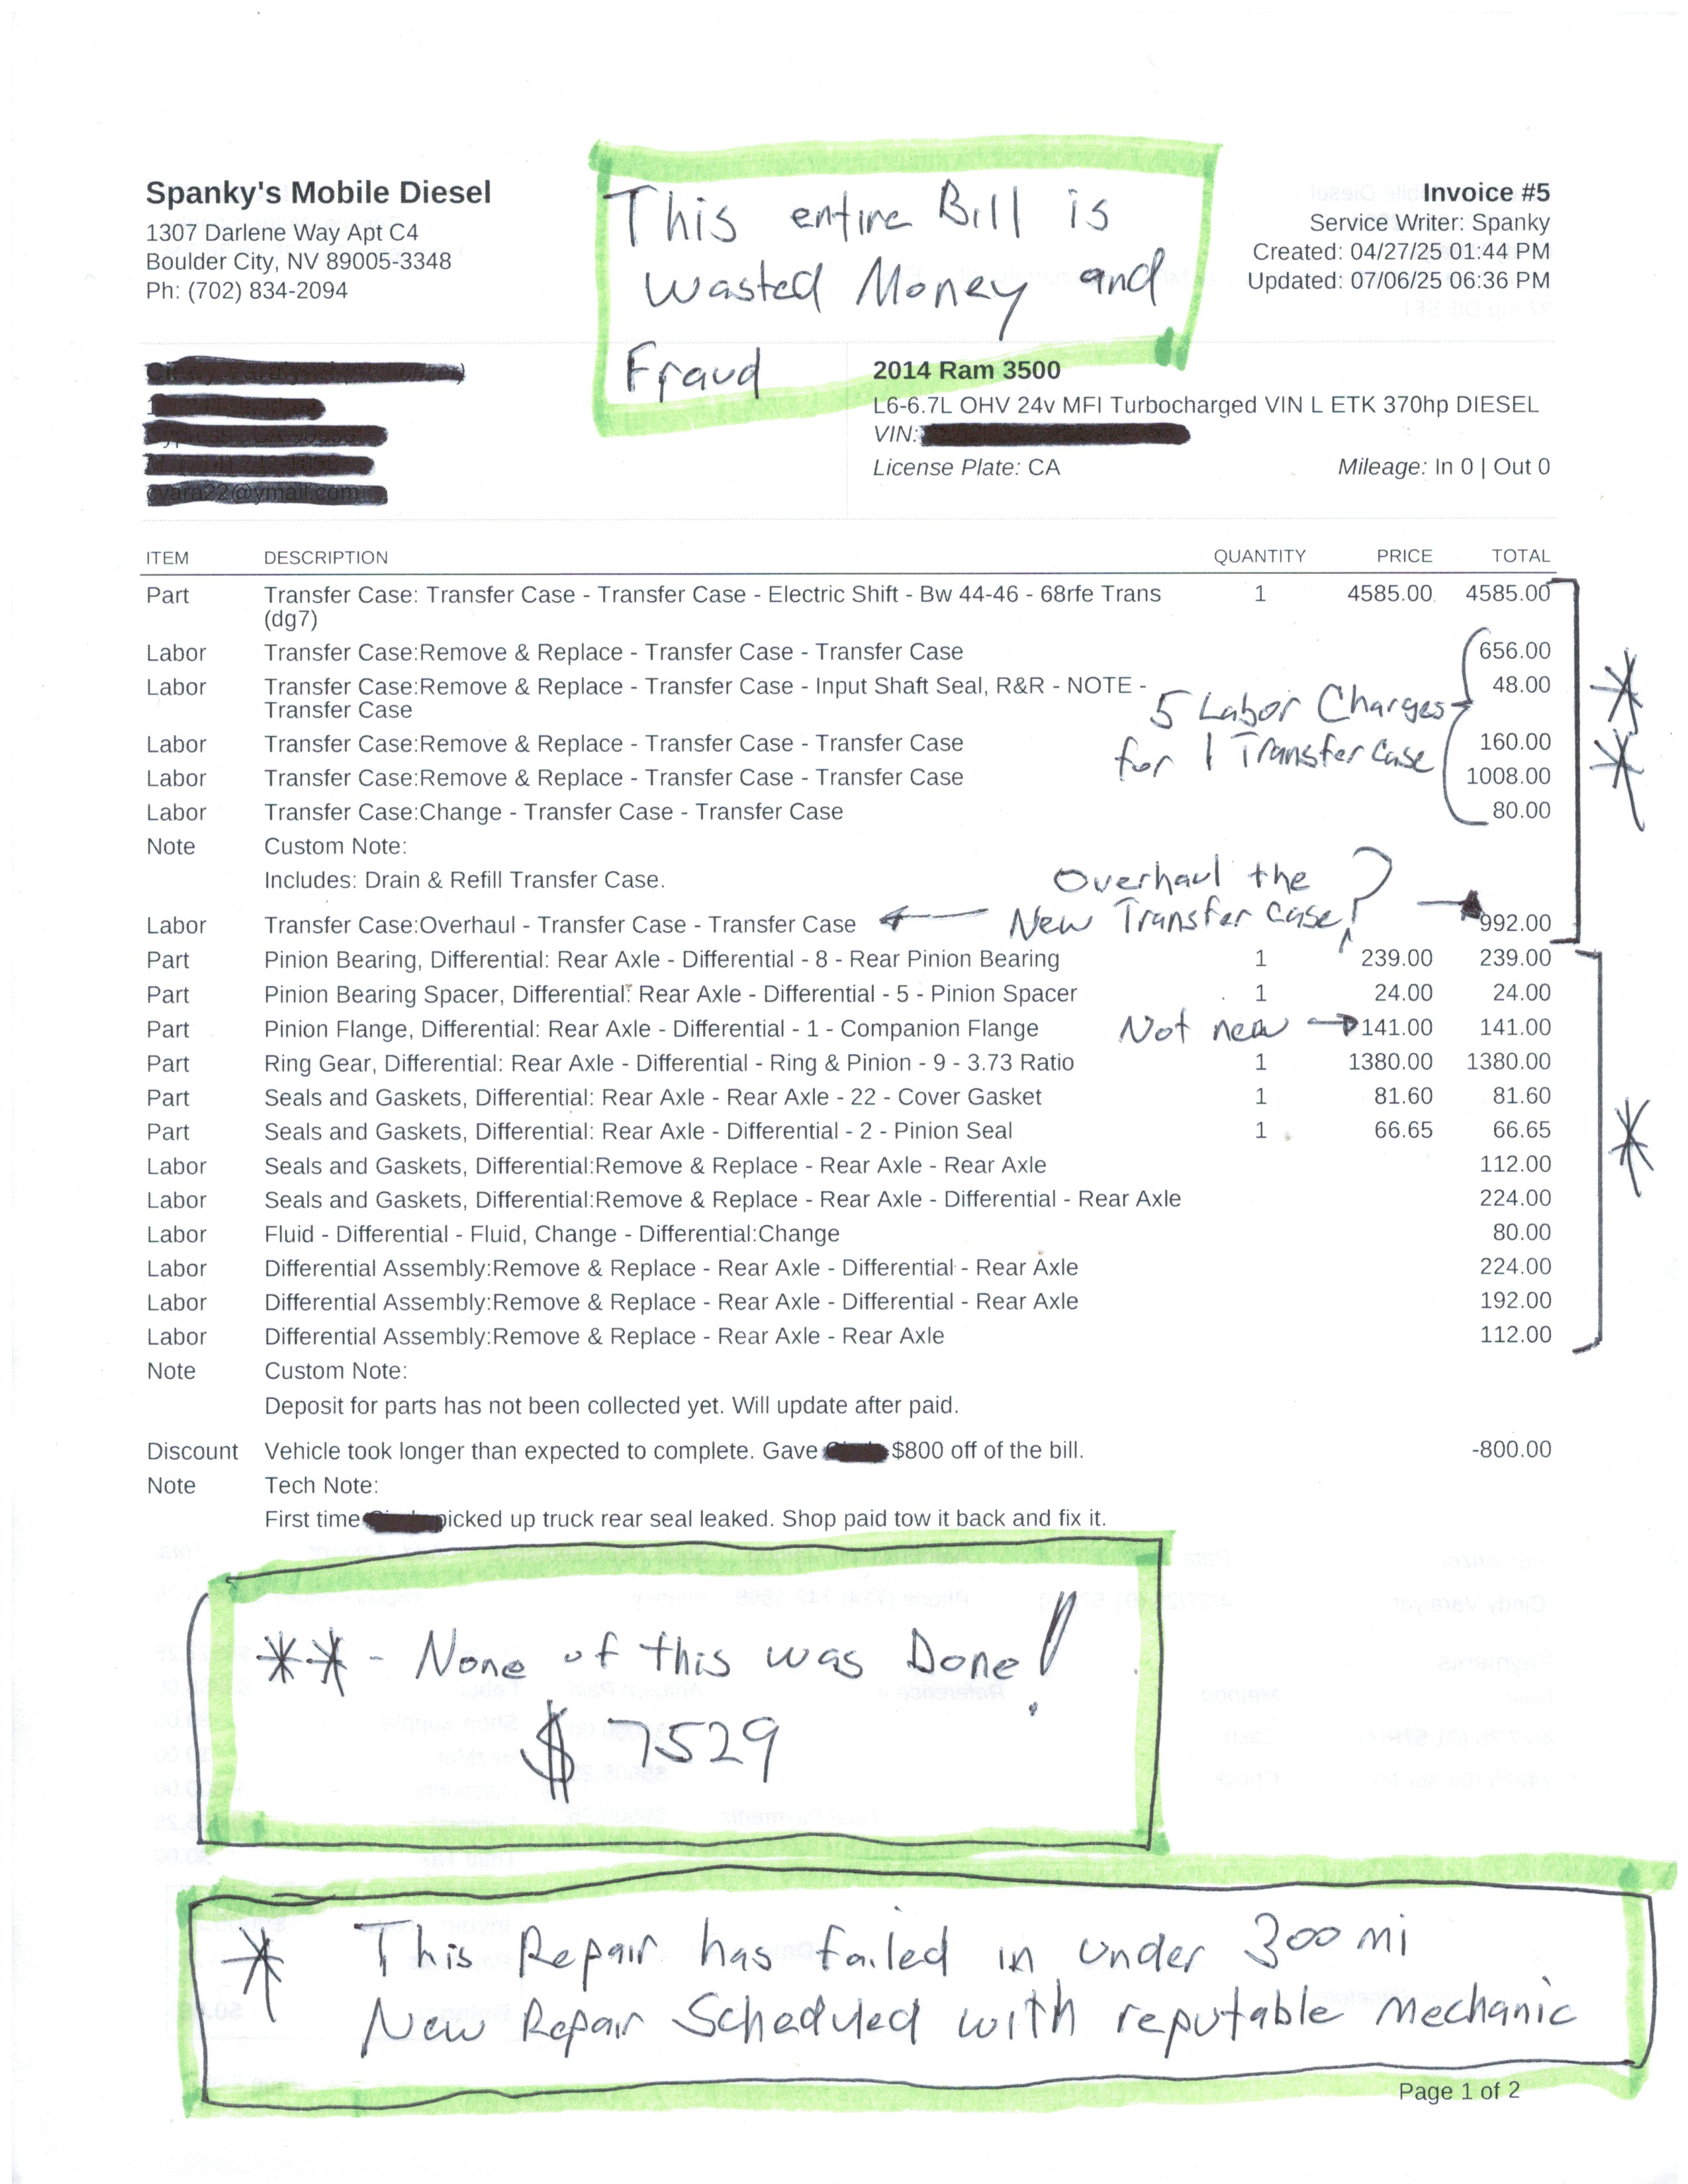 Spanky's Mobile Diesel
1307 Darlene Way Apt C4
Boulder City, NV 89005-3348
Ph: (702) 834-2094
This entire Bill is
wasted Money and
Fraud
Invoice #5
Service Writer: Spanky
Created: 04/27/25 01:44 PM
Updated: 07/06/25 06:36 PM
2014 Ram 3500
L6-6.7L OHV 24v MFI Turbocharged VIN L ETK 370hp DIESEL
VIN:
License Plate: CA Mileage: In 0 | Out 0
ITEM DESCRIPTION QUANTITY PRICE TOTAL
Part Transfer Case: Transfer Case - Transfer Case - Electric Shift - Bw 44-46 - 68rfe Trans 1 4585.00 4585.00
(dg7)
Labor Transfer Case:Remove & Replace - Transfer Case - Transfer Case 656.00
Labor Transfer Case:Remove & Replace - Transfer Case - Input Shaft Seal, R&R - NOTE - 48.00
Transfer Case
5 Labor Charges
for 1 Transfer Case
Labor Transfer Case:Remove & Replace - Transfer Case - Transfer Case 160.00
Labor Transfer Case:Remove & Replace - Transfer Case - Transfer Case 1008.00
Labor Transfer Case:Change - Transfer Case - Transfer Case 80.00
Note Custom Note:
Includes: Drain & Refill Transfer Case.
Overhaul the
New Transfer Case?
Labor Transfer Case:Overhaul - Transfer Case - Transfer Case 992.00
Part Pinion Bearing, Differential: Rear Axle - Differential - 8 - Rear Pinion Bearing 1 239.00 239.00
Part Pinion Bearing Spacer, Differential: Rear Axle - Differential - 5 - Pinion Spacer 1 24.00 24.00
Part Pinion Flange, Differential: Rear Axle - Differential - 1 - Companion Flange Not new 141.00 141.00
Part Ring Gear, Differential: Rear Axle - Differential - Ring & Pinion - 9 - 3.73 Ratio 1 1380.00 1380.00
Part Seals and Gaskets, Differential: Rear Axle - Rear Axle - 22 - Cover Gasket 1 81.60 81.60
Part Seals and Gaskets, Differential: Rear Axle - Differential - 2 - Pinion Seal 1 66.65 66.65
Labor Seals and Gaskets, Differential:Remove & Replace - Rear Axle - Rear Axle 112.00
Labor Seals and Gaskets, Differential:Remove & Replace - Rear Axle - Differential - Rear Axle 224.00
Labor Fluid - Differential - Fluid, Change - Differential:Change 80.00
Labor Differential Assembly:Remove & Replace - Rear Axle - Differential - Rear Axle 224.00
Labor Differential Assembly:Remove & Replace - Rear Axle - Differential - Rear Axle 192.00
Labor Differential Assembly:Remove & Replace - Rear Axle - Rear Axle 112.00
Note Custom Note:
Deposit for parts has not been collected yet. Will update after paid.
Discount Vehicle took longer than expected to complete. Gave $800 off of the bill. -800.00
Note Tech Note:
First time picked up truck rear seal leaked. Shop paid tow it back and fix it.
** - None of this was Done!
$ 7529
* This Repair has failed in under 300 mi
New Repair Scheduled with reputable Mechanic
Page 1 of 2